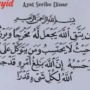 yid
Ayat Seribu Dinar
بِسْمِ اللَّهِ الرَّحْمَنِ الرَّحِيمِ
وَمَنْ يَتَّقِ اللَّهَ يَجْعَلْ لَهُ مَخْرَجًا وَيَرْزُقْهُ
مِنْ حَيْثُ لَا يَحْتَسِبُ وَمَنْ يَتَوَكَّلْ عَلَى
اللَّهِ فَهُوَ حَسْبُهُ إِنَّ اللَّهَ بَالِغُ أَمْرِهِ قَدْ جَعَلَ
اللَّهُ لِكُلِّ شَيْءٍ قَدْرًا